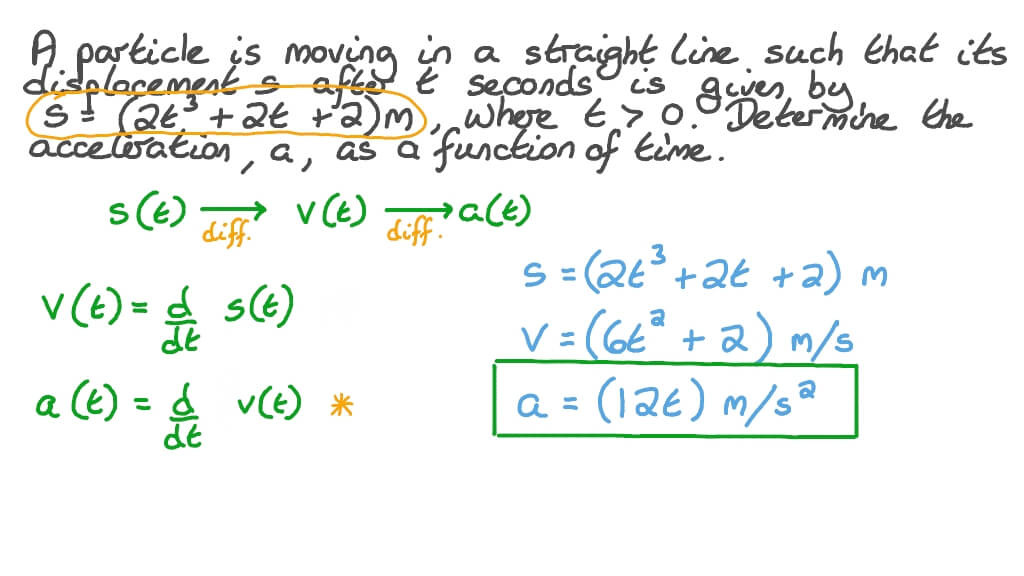 A particle is moving in a straight line such that its
displacement s after t seconds is given by
s = (2t³ + 2t + 2)m, where t > 0. Determine the
acceleration, a, as a function of time.
s(t) ⟶ v(t) ⟶ a(t)
diff. diff.
s = (2t³ + 2t + 2) m
v(t) = d/dt s(t)
v = (6t² + 2) m/s
a(t) = d/dt v(t) *
a = (12t) m/s²